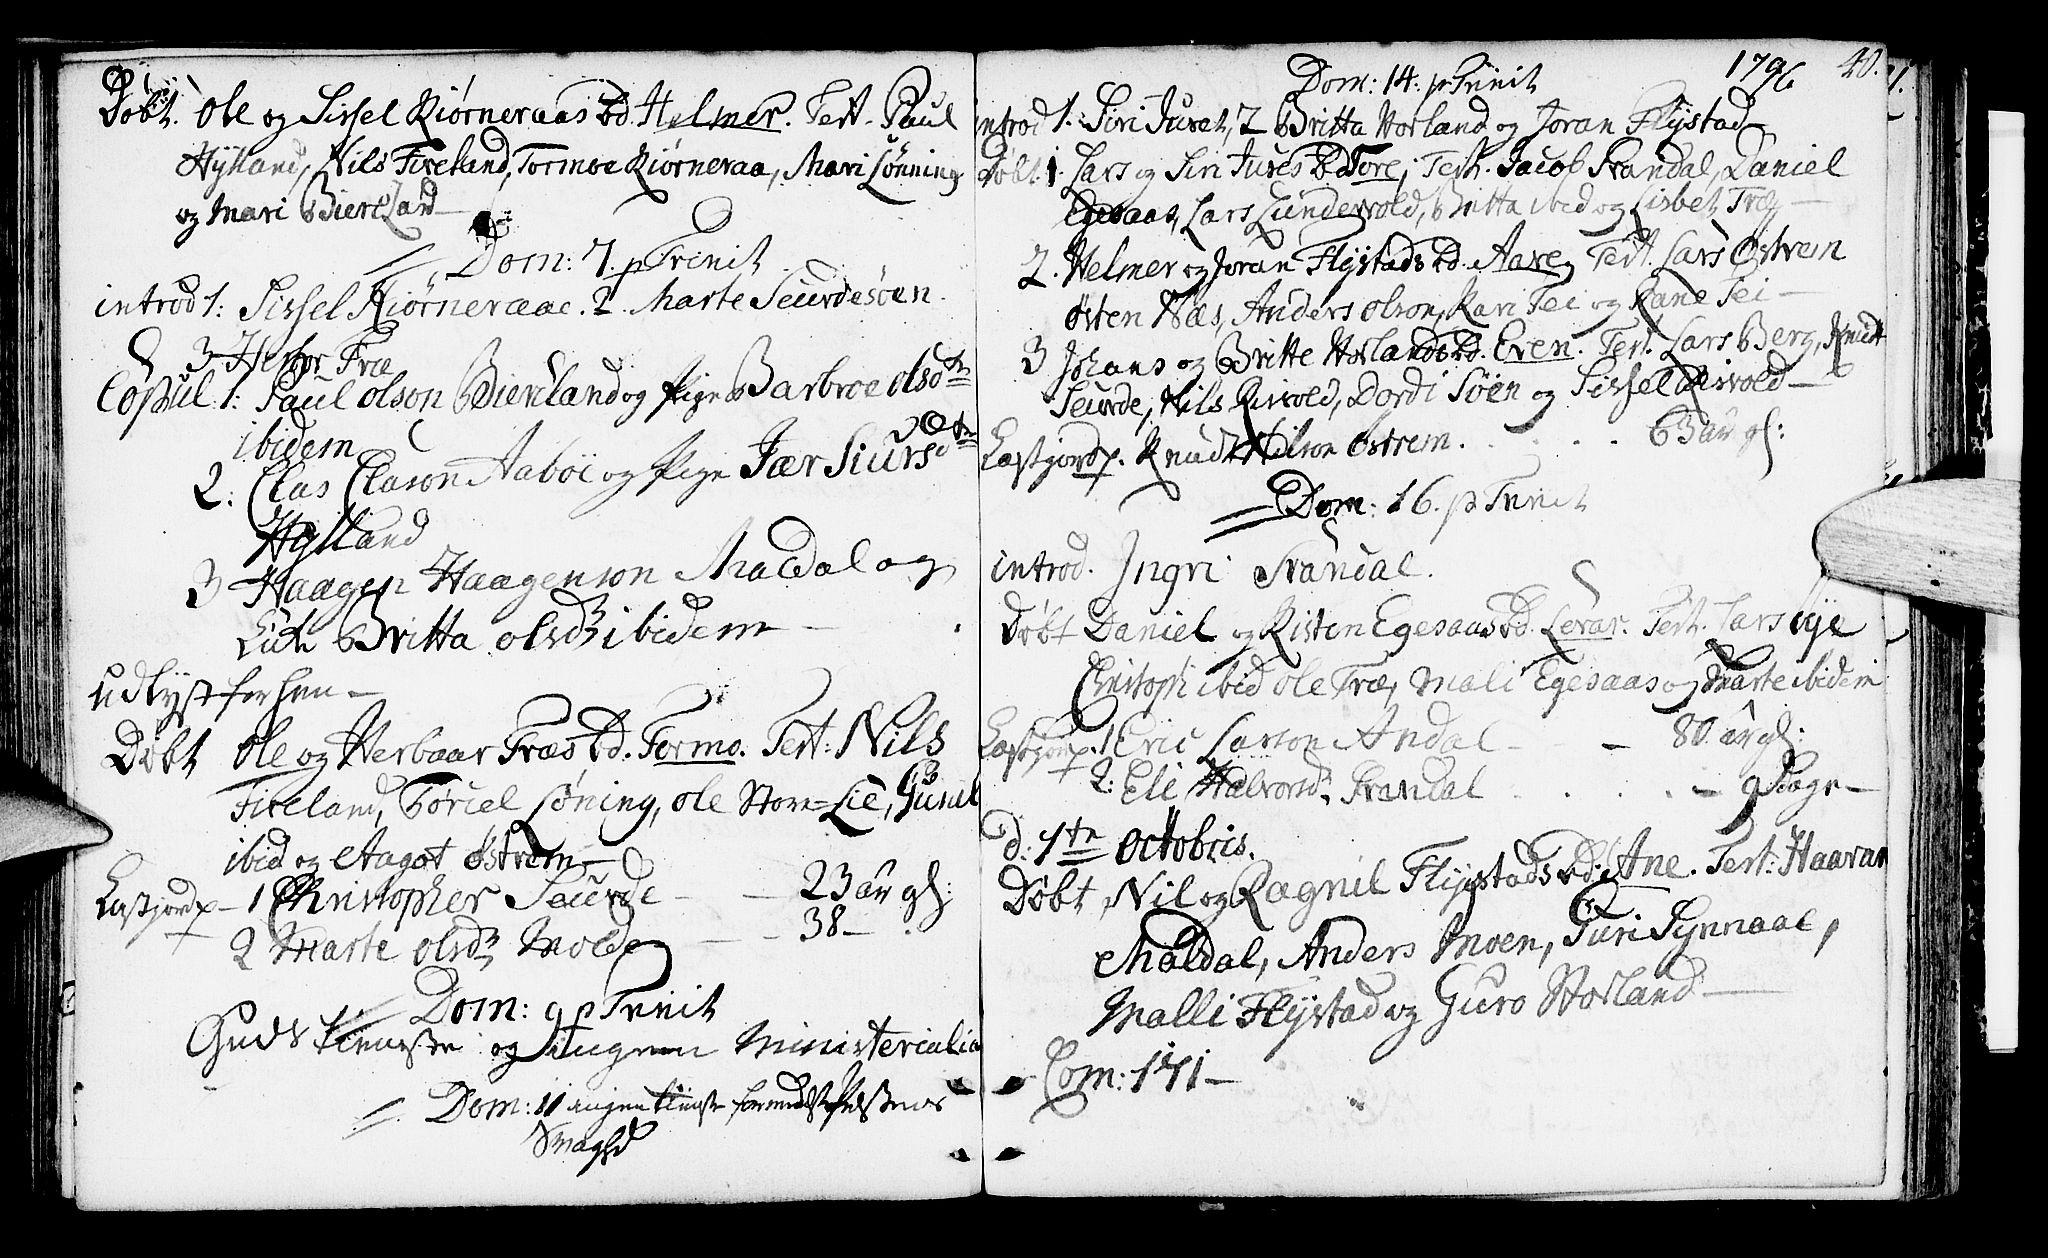 Døbt. Ole og Sissel Kiørneraas bd. Helmer. Test. Paul
Hylland, Nils Fixeland, Tormoe Kiørneraa, Mari Lønning
og Mari Biereland
Dom: 7. p Trinit
introd 1: Sissel Kiørneraae. 2. Marte Seurdesøen.
3 Herbor Træ
Copul. 1: Paul Olson Biereland og Pige Barbroe olsdtr
ibidem
2: Clas Clason Aaboe og Pige Jær Siursdtr
Hylland
3 Haagen Haagenson Maldal og
Britta olsdr ibidem
udlyst forhen
Døbt Ole og Herbaar Træs bd. Tormo. Test: Nils
Fixeland, Tøriel Løning, Ole Store=Lie, Guniel
ibid og Aagot Østrem
Castjordp 1 Christopher Seurde 23 aar gl:
2 Marte olsdr Molde 38
Dom: 9 p Trinit
Guds tieneste og Ingen Ministerialia
Dom: 11 ingen tieneste formedelst Præstens
Svaghed
1796 40.
Dom: 14. p Trinit
introd 1. Siri Jures, 2 Britta Horland og Joran Flÿstad
Døbt 1. Lars og Siri Jures bd Tore, Test. Jacob Svandal, Daniel
Egesaas, Lars Lundevold, Britta ibid og Lisbet Træ
2. Helmer og Joran Flÿstads bd. Aane, Test. Lars Østrem
Østen Næs, Anders Olson, Kari Tei og Rane Tei
3 Johans og Britte Horlands bd. Even. Test. Lars Berg, Knudt
Seurde, Nils Risvold, Dordi Søen og Sissel Risvold
Castjordp. Knudt Nilson Østrem. 63 aar gl:
Dom: 16. p Trinit
introd. Ingri Svandal.
Døbt Daniel og Kisten Egesaas bd. Levar. Test. Lars Eye
Christoph ibid Ole Træ, Mali Egesaas og Marte ibidem
Castjorp. 1 Eric Larson Andal 80 aar gl:
2: Eli Halvorsdr Svandal 9 Dage
D: 1te Octobris.
Døbt Nil og Ragnil Flÿstads bd: Ane. Test: Haavar
Maldal, Anders Moen, Turi Synnaae,
Malli Flÿstad og Guro Horland
Com: 171